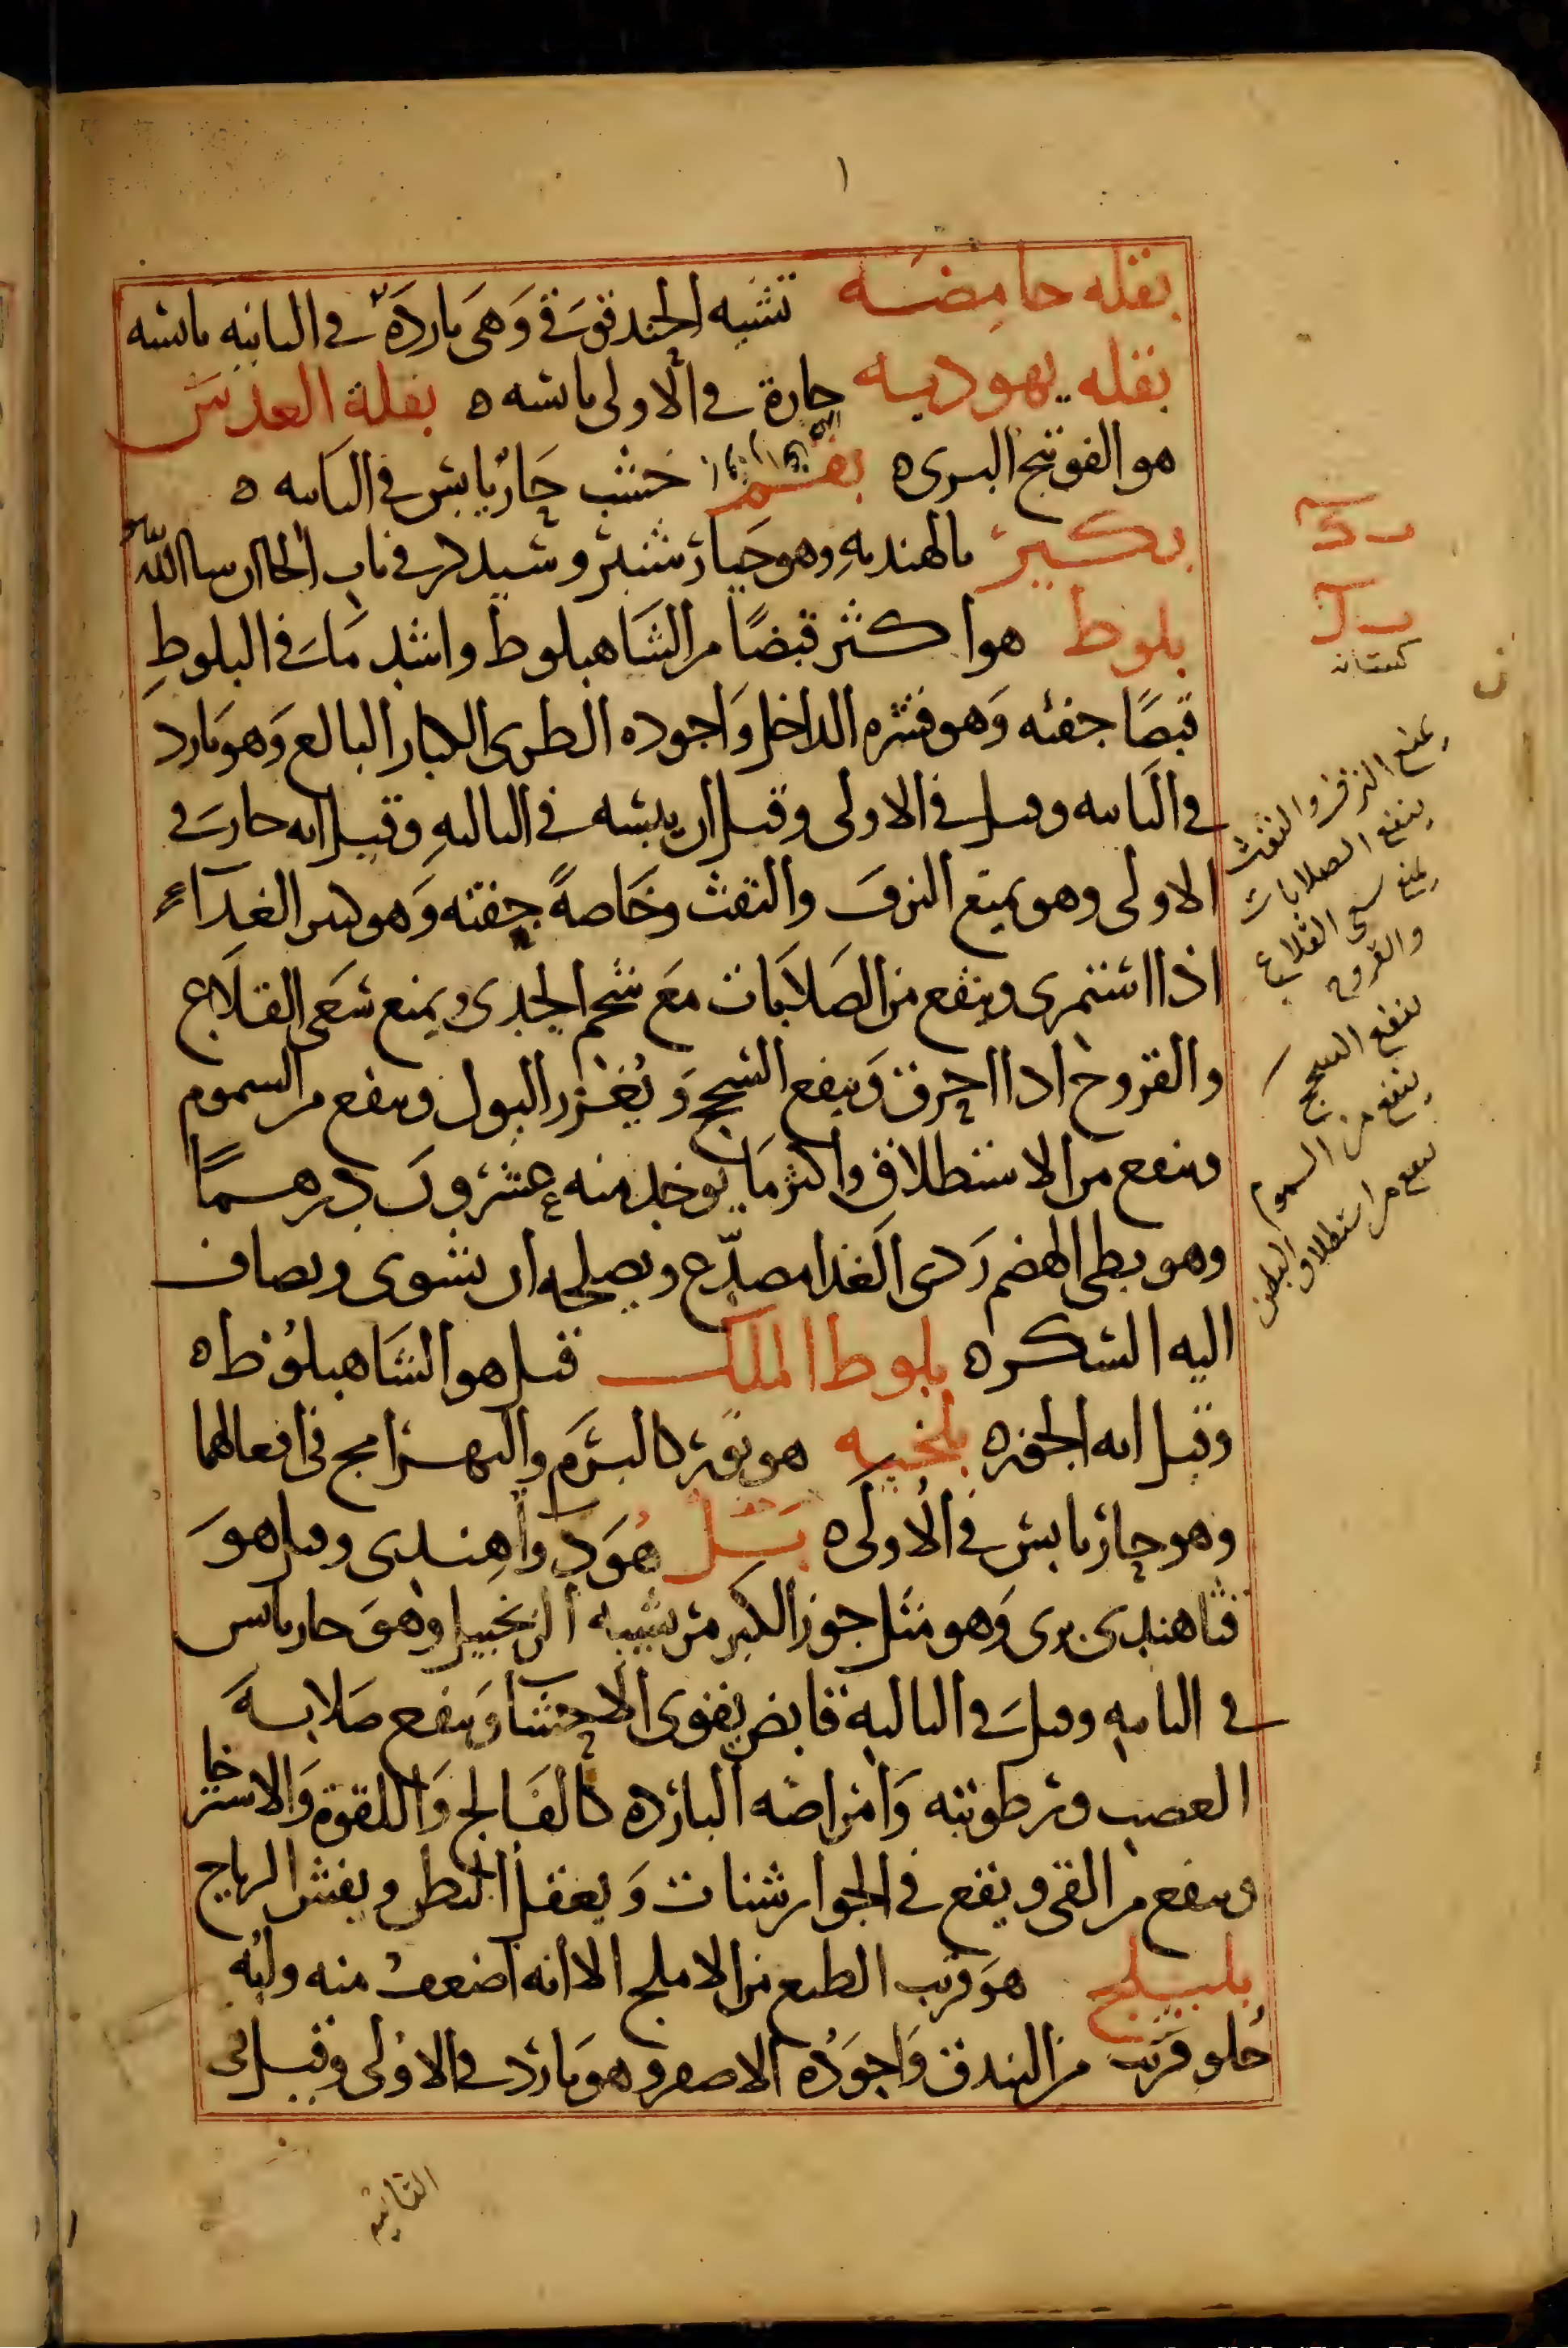 بقله حامضه تشبه الحندقوقى وهى بارده فى الثانيه يابسه
بقله يهوديه حارة فى الاولى يابسه ه بقلة العدس
هو الفوتنج البرى ه بقم خشب حار يابس فى الثانيه ه
بكبر بالهنديه وهو خيار شنبر وسيذكر فى باب الخا ان شا الله
بلوط هو اكثر قبضًا من الشاهبلوط واشد ما فى البلوط
قبضًا جفته وهو قشره الداخل واجوده الطرى الكبار البالغ وهو بارد
فى الثانيه وقيل فى الاولى وقيل ان يبسه فى الثالثه وقيل انه حار فى
الاولى وهو يمنع النزف والنفث وخاصةً جفته وهو كثير الغذاء
اذا استمرى وينفع من الصلابات مع شحم الجدى ويمنع سعى القلاع
والقروح اذا احرق وينفع السحج ويغزر البول وينفع من السموم
وينفع من الاستطلاق واكثر ما يوخذ منه عشرون درهمًا
وهو بطى الهضم ردى الغذا مصدّع ويصلحه ان يشوى ويضاف
اليه السكر ه بلوط الملك قيل هو الشاهبلوط ه
وقيل انه الجوز ه بلخيه هو نور كالبرم والبهرامج فى افعالهما
وهو حار يابس فى الاولى ه بل هو دوا هندى وقيل هو
قثا هندى برى وهو مثل جوز الكبر مر يشبه الزنجبيل وهو حار يابس
فى الثانيه وقيل فى الثالثة قابض يقوى الاحشا وينفع صلابة
العصب ورطوبته وامراضه البارده كالفالج واللقوة والاسترخا
وينفع من القى ويقع فى الجوارشنات ويعقل البطن ويفش الرياح
بليلج هو قريب الطبع من الاملج الا انه اضعف منه ولبه
حلو قريب من البندق واجوده الاصفر وهو بارد فى الاولى وقيل فى
الثانيه
يمنع النزف والنفث
ينفع الصلابات
يمنع سعى القلاع
والقروح
ينفع السحج
ينفع من السموم
ينفع من استطلاق البطن